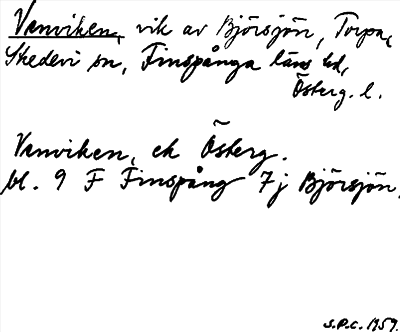 Vanviken, vik av Björsjön, Torpa,
Skedevi sn, Finspånga läns hd,
Österg. l.
Vanviken, ek Österg.
bl. 9 F Finspång 7j Björsjön.
S.P.C. 1959.